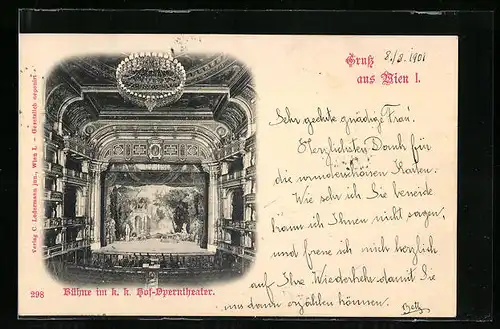 Gruß
aus Wien I.
8./8. 1901
Sehr geehrte gnädige Frau!
Herzlichsten Dank für
die wunderschönen Karten.
Wie sehr ich Sie beneide
kann ich Ihnen nicht sagen,
und freue ich mich herzlich
auf Ihre Wiederkehr damit Sie
uns dann erzählen können.
298
Bühne im k. k. Hof-Operntheater.
Verlag C. Ledermann jun., Wien I. – Gesetzlich deponirt –